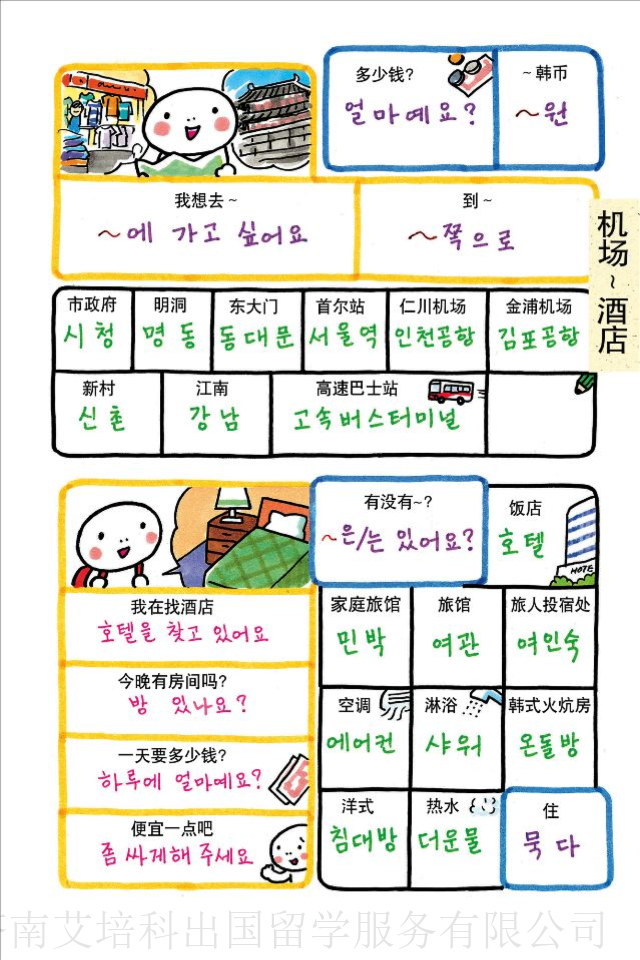 多少钱?
얼마예요?
~韩币
~원
我想去~
~에 가고 싶어요
到~
~쪽으로
机场~酒店
市政府
시청
明洞
명동
东大门
동대문
首尔站
서울역
仁川机场
인천공항
金浦机场
김포공항
新村
신촌
江南
강남
高速巴士站
고속버스터미널
有没有~?
~은/는 있어요?
饭店
호텔
HOTE
我在找酒店
호텔을 찾고 있어요
今晚有房间吗?
방 있나요?
一天要多少钱?
하루에 얼마예요?
便宜一点吧
좀 싸게해 주세요
家庭旅馆
민박
旅馆
여관
旅人投宿处
여인숙
空调
에어컨
淋浴
샤워
韩式火炕房
온돌방
洋式
침대방
热水
더운물
住
묵다
济南艾培科出国留学服务有限公司